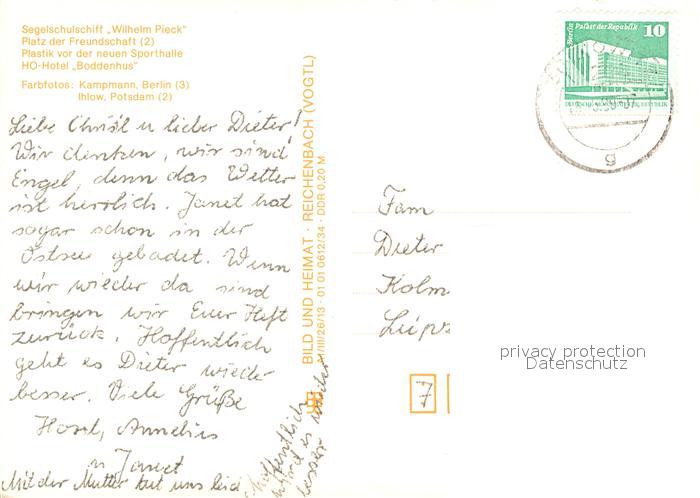 Segelschulschiff „Wilhelm Pieck"
Platz der Freundschaft (2)
Plastik vor der neuen Sporthalle
HO-Hotel „Boddenhus"
Farbfotos: Kampmann, Berlin (3)
Ihlow, Potsdam (2)
Liebe Christl u lieber Dieter!
Wir denken, wir sind
Engel, denn das Wetter
ist herrlich. Janet hat
sogar schon in der
Ostsee gebadet. Wenn
wir wieder da sind
bringen wir Euer Heft
zurück. Hoffentlich
geht es Dieter wieder
besser. Viele Grüße
Horst, Annelies
u Janet
Mit der Mutter tut uns leid
Hoffentlich
wird es wieder
besser
BILD UND HEIMAT · REICHENBACH (VOGTL)
III/26/13 · 01 01 0612/34 · DDR 0,20 M
Berlin Palast der Republik
10
g
Fam
Dieter
Kolm
Leipz
7
privacy protection
Datenschutz